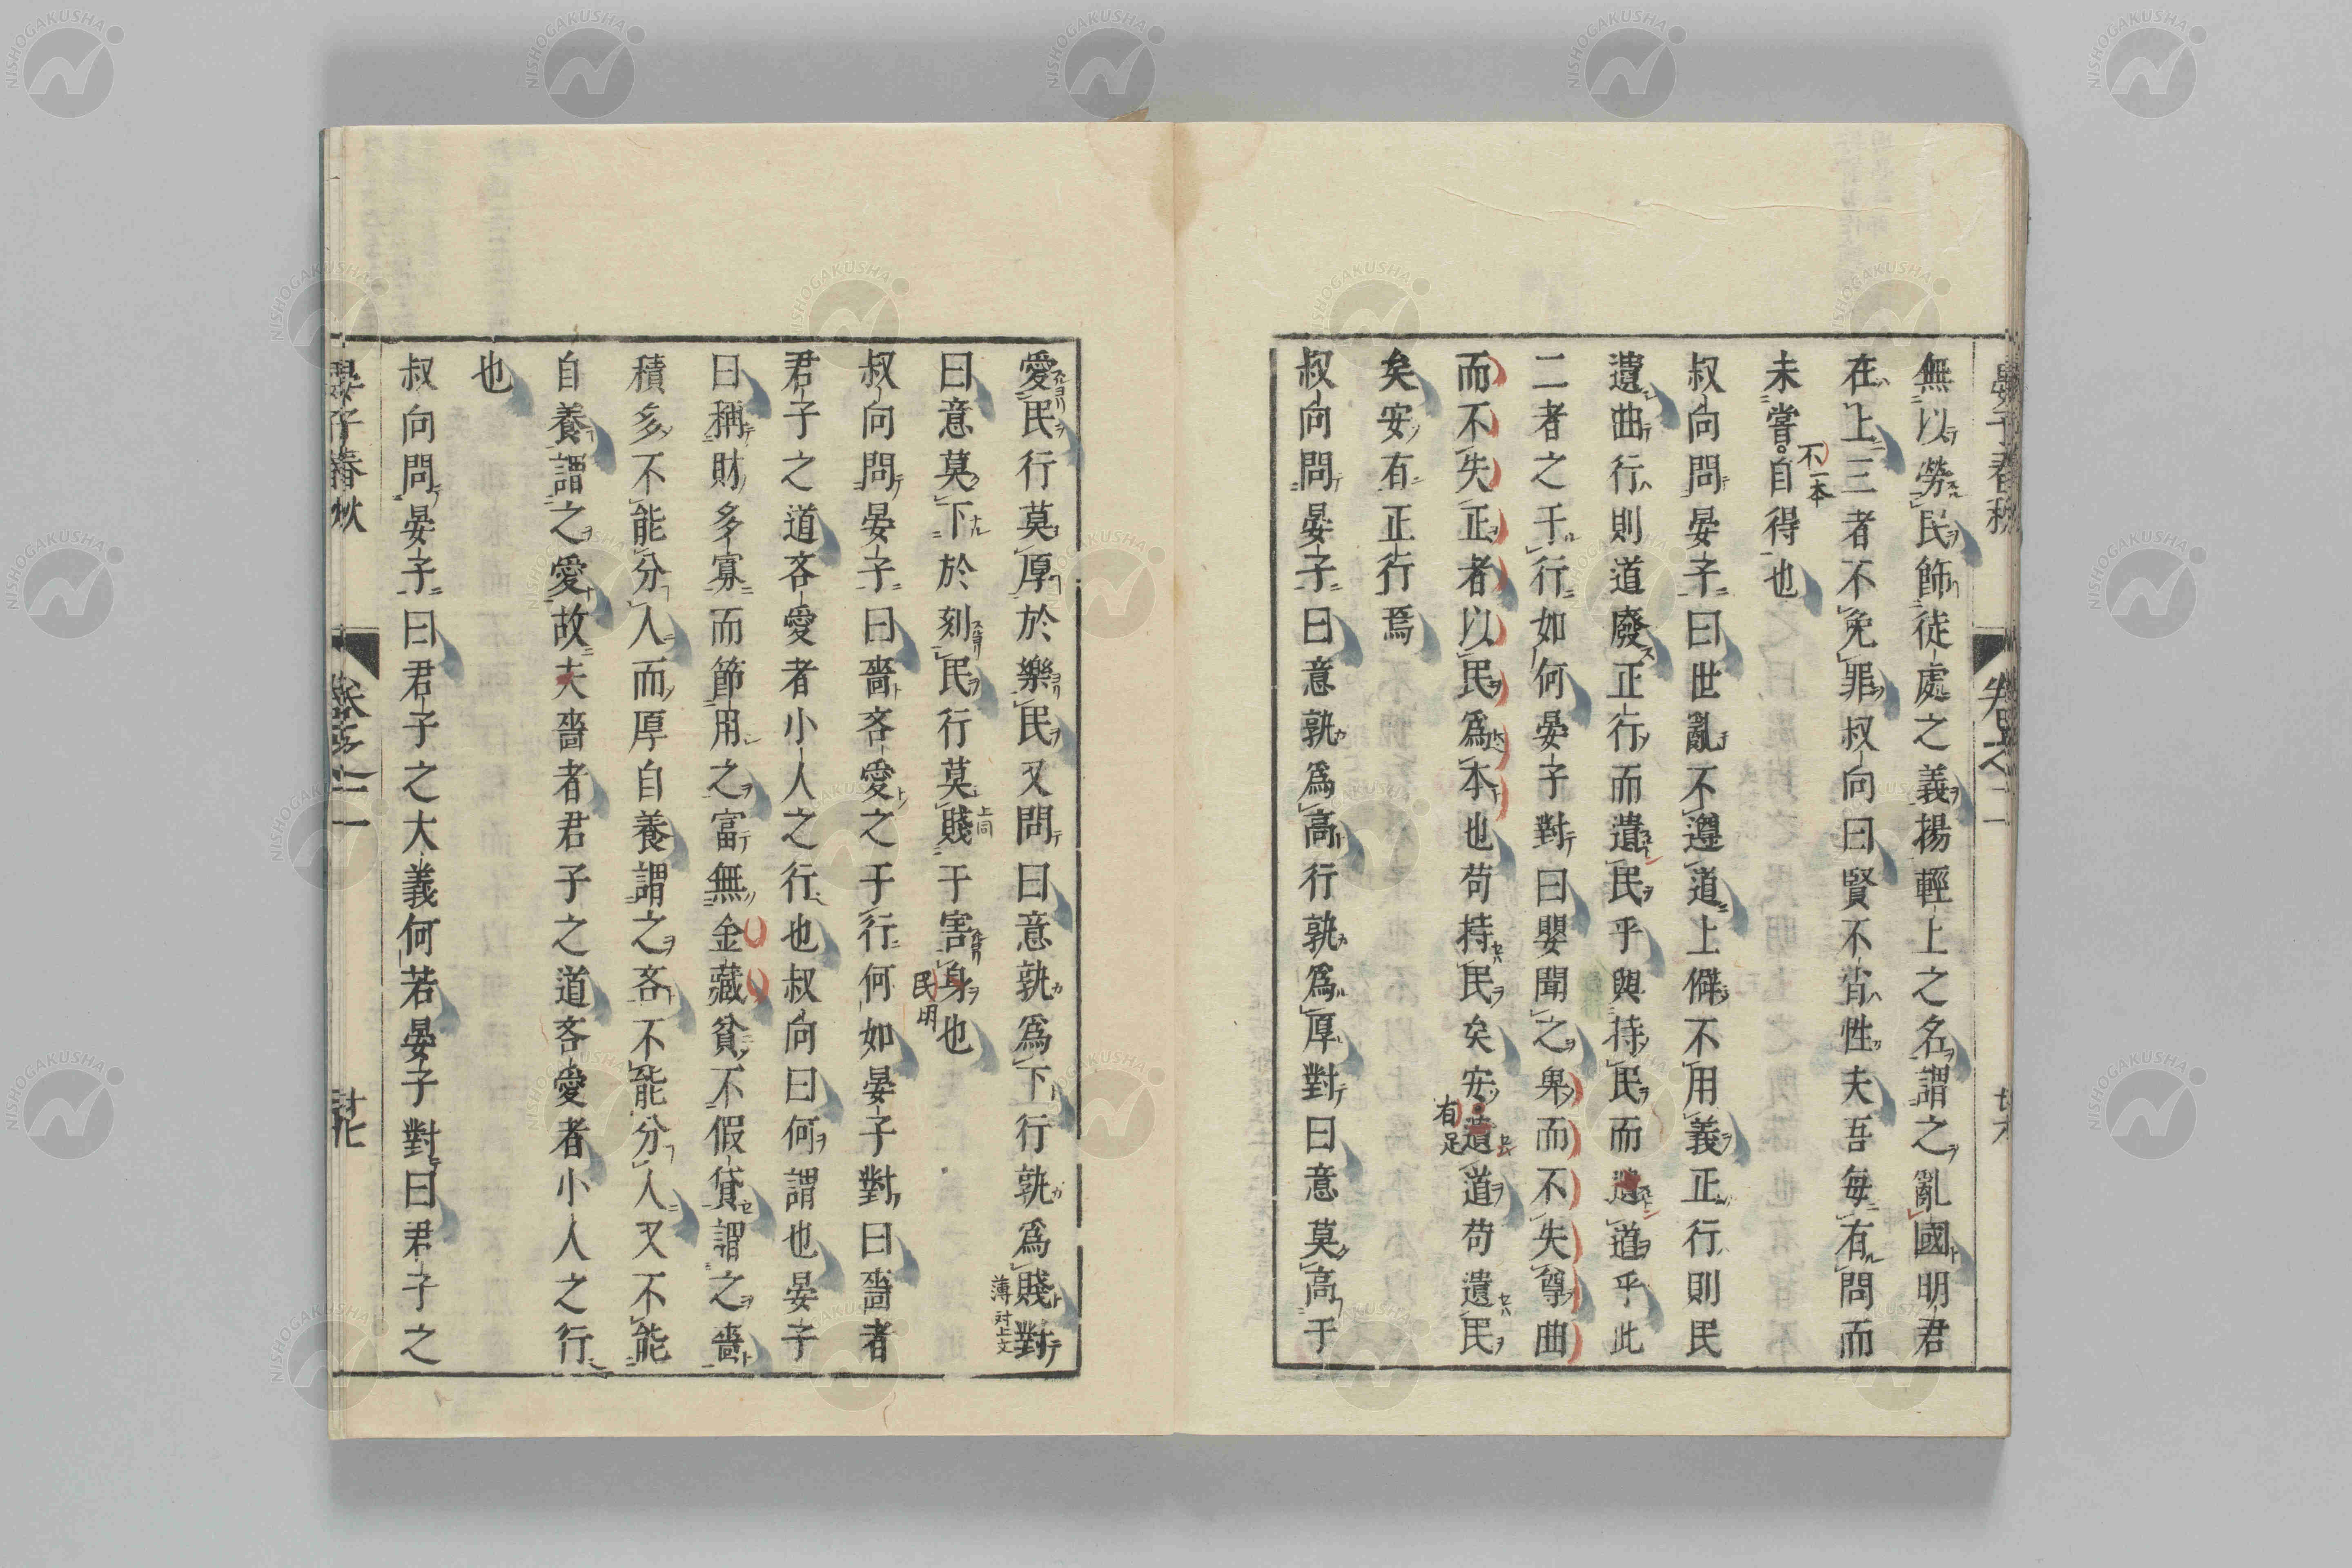 無以勞民飾徒處之義揚輕上之名謂之亂國明君
在上三者不免罪叔向曰賢不肖性夫吾每有問而
未嘗自得也
不一本
叔向問晏子曰世亂不遵道上僻不用義正行則民
遺曲行則道廢正行而遺民乎與持民而遺道乎此
二者之于行如何晏子對曰嬰聞之卑而不失尊曲
而不失正者以民爲本也苟持民矣安遺道苟遺民
有足
矣安有正行焉
叔向問晏子曰意孰爲高行孰爲厚對曰意莫高于
愛民行莫厚於樂民又問曰意孰爲下行孰爲賤對
薄対上文
曰意莫下於刻民行莫賤于害身也
上同
民用
叔向問晏子曰嗇吝愛之于行何如晏子對曰嗇者
君子之道吝愛者小人之行也叔向曰何謂也晏子
曰稱財多寡而節用之富無金藏貧不假貸謂之嗇
積多不能分人而厚自養謂之吝不能分人又不能
自養謂之愛故夫嗇者君子之道吝愛者小人之行
也
叔向問晏子曰君子之大義何若晏子對曰君子之
晏子春秋
卷之二
NISHOGAKUSHA